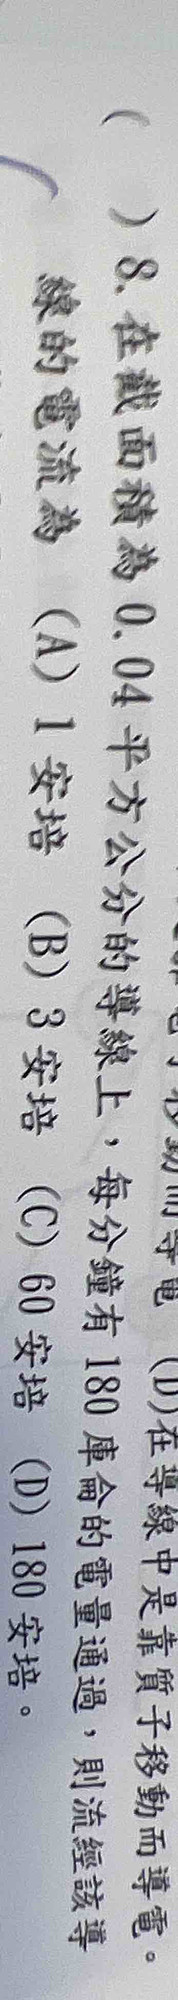 (D)在導線中是靠質子移動而導電。
( ) 8. 在截面積為 0.04 平方公分的導線上，每分鐘有 180 庫侖的電量通過，則流經該導
線的電流為 (A) 1 安培 (B) 3 安培 (C) 60 安培 (D) 180 安培。